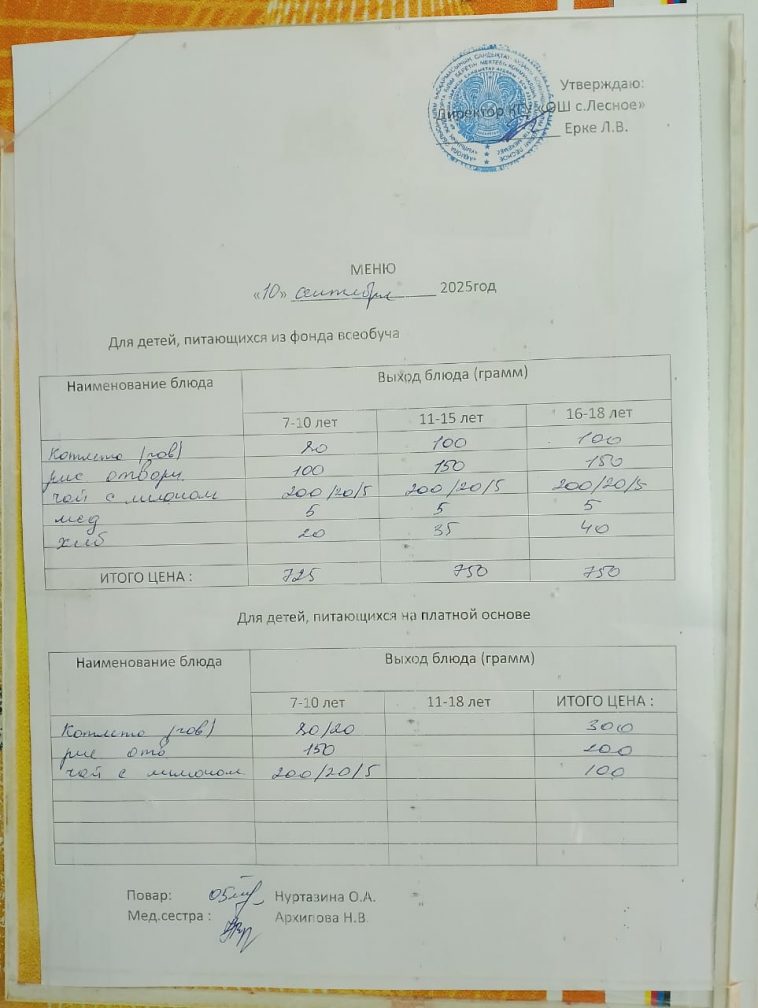 Утверждаю:
Директор КГУ «ОШ с.Лесное»
Ерке Л.В.
МЕНЮ
«10» сентября 2025год
Для детей, питающихся из фонда всеобуча
Наименование блюда Выход блюда (грамм)
7-10 лет 11-15 лет 16-18 лет
Котлета (гов) 80 100 100
рис отварн 100 150 150
чай с лимоном 200/20/5 200/20/5 200/20/5
мед 5 5 5
хлеб 20 35 40
ИТОГО ЦЕНА : 725 750 750
Для детей, питающихся на платной основе
Наименование блюда Выход блюда (грамм)
7-10 лет 11-18 лет ИТОГО ЦЕНА :
Котлета (гов) 80/20 300
рис отв 150 200
чай с лимоном 200/20/5 100
Повар: Нуртазина О.А.
Мед.сестра : Архипова Н.В.